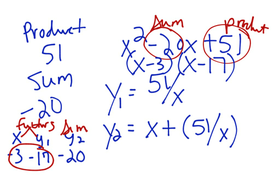 Product
51
Sum
-20
factors Sum
x y₁ y₂
-3 -17 -20
Sum product
x² -20x +51
(x-3)(x-17)
y₁ = 51/x
y₂ = x + (51/x)